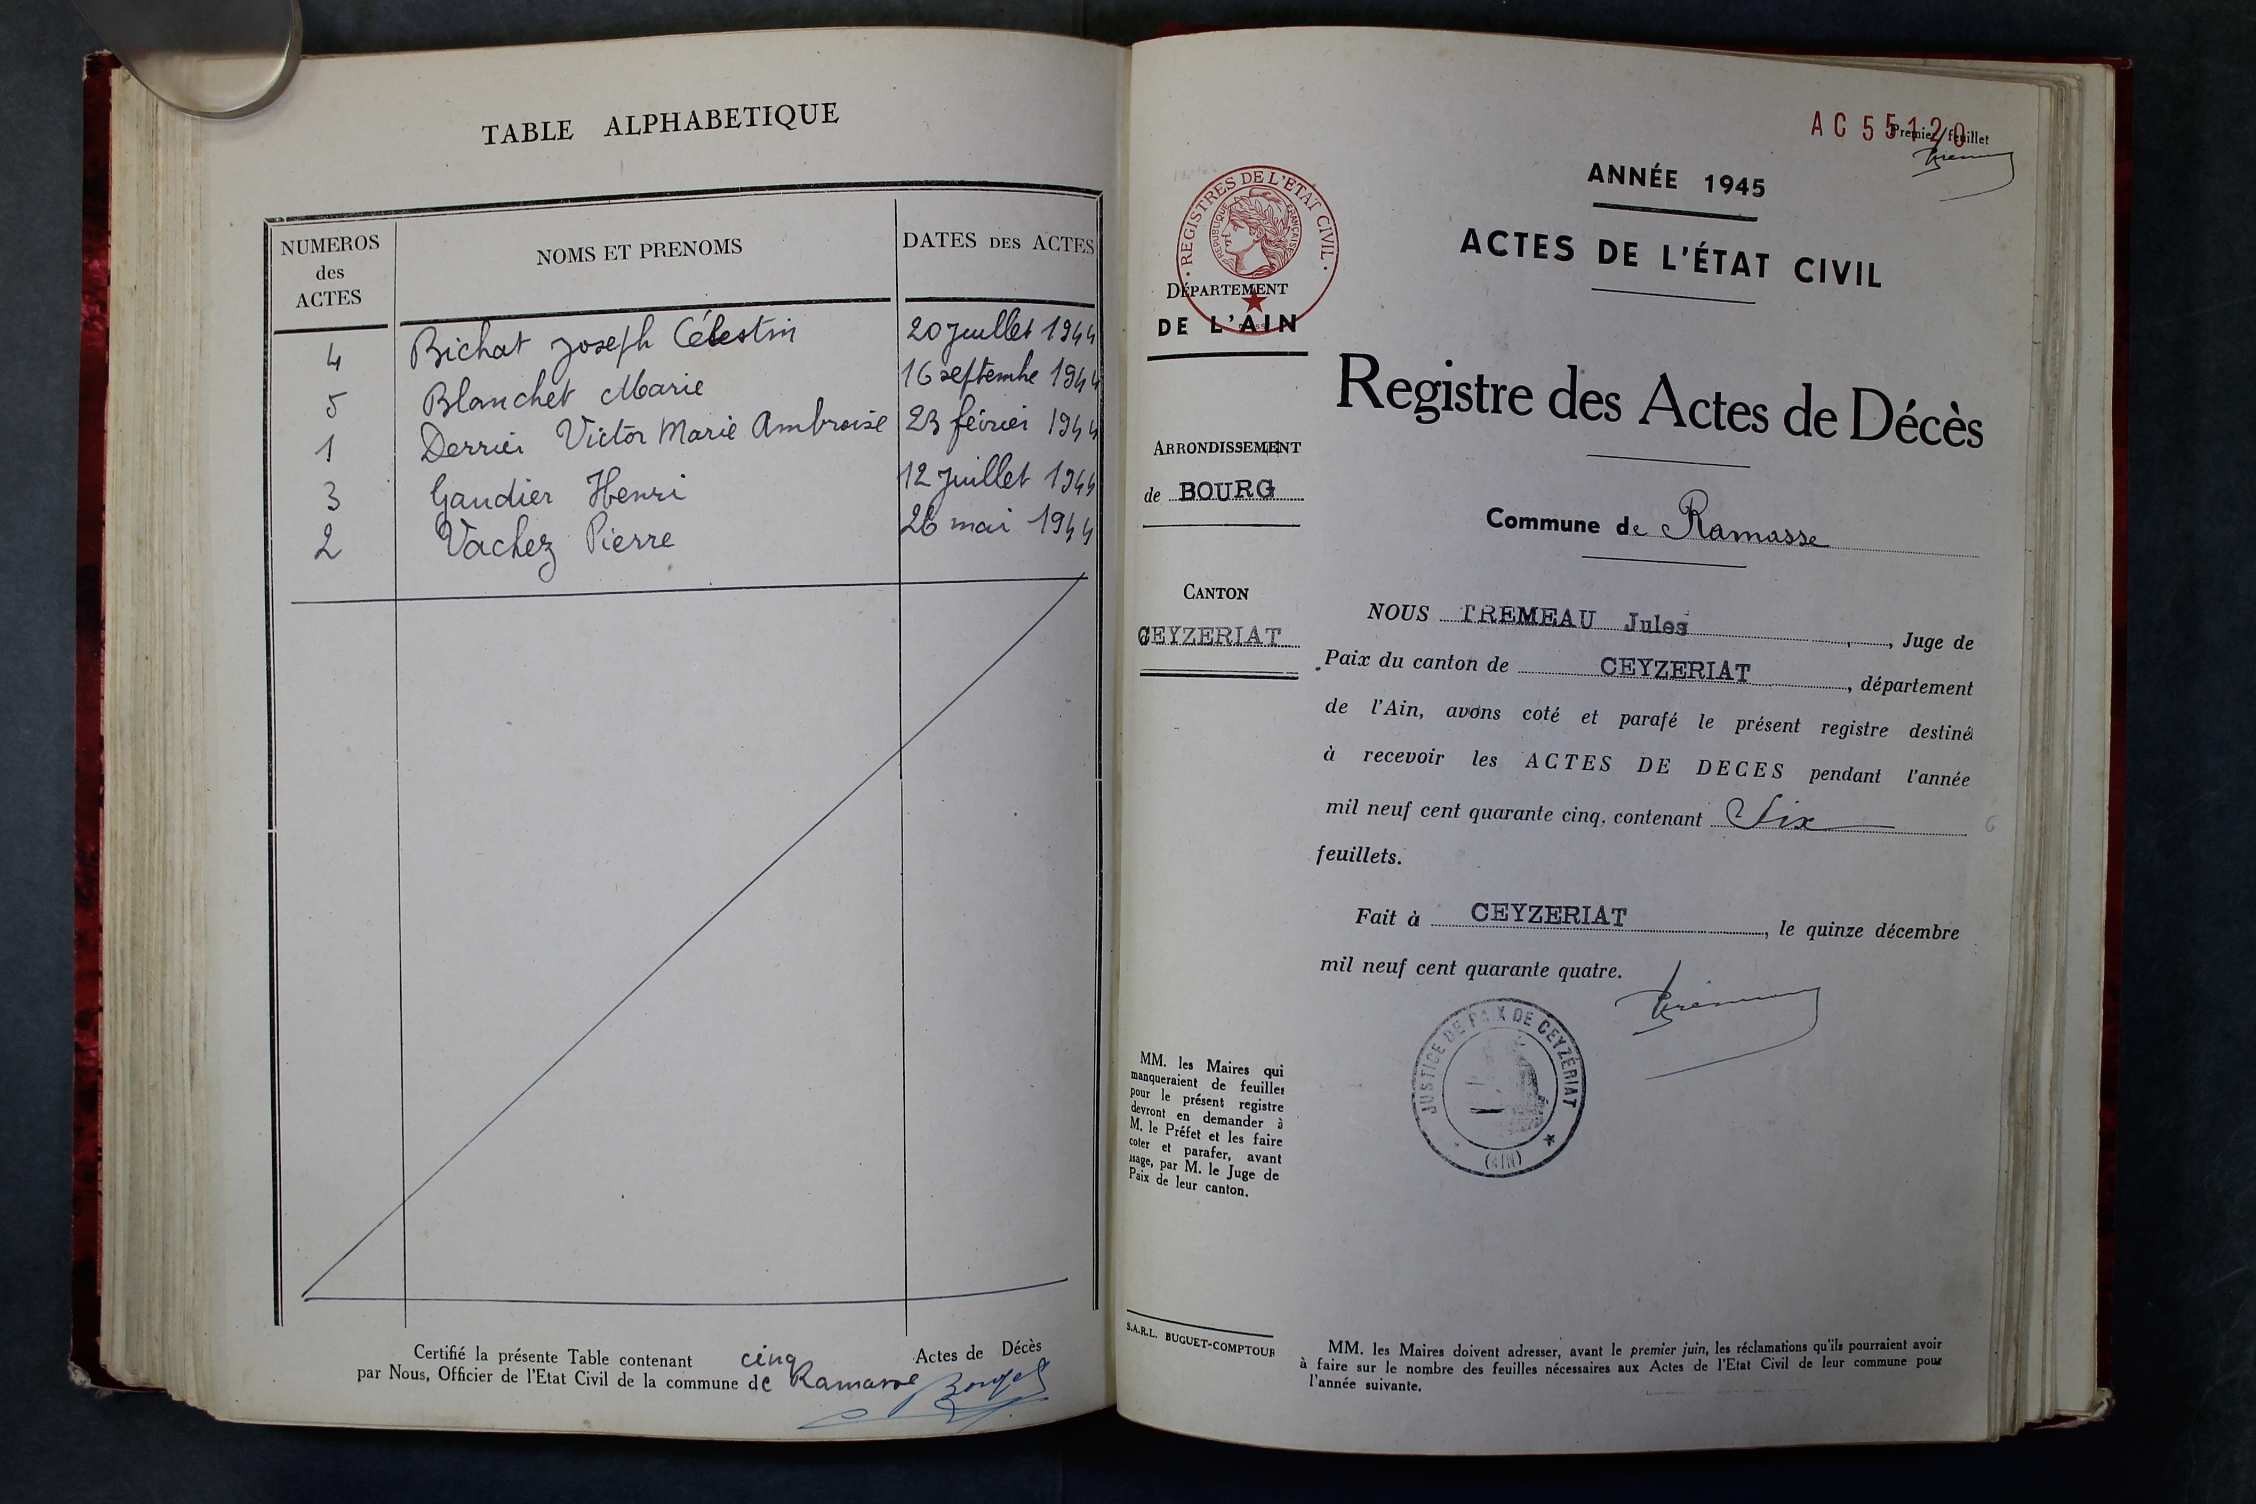 TABLE ALPHABETIQUE
NUMEROS des ACTES
NOMS ET PRENOMS
DATES DES ACTES
4 Bichat Joseph Célestin 20 Juillet 1944
5 Blanchet Marie 16 septembre 1944
1 Derrier Victor Marie Ambroise 23 février 1944
3 Gaudier Henri 12 Juillet 1944
2 Vachez Pierre 26 mai 1944
Certifié la présente Table contenant cinq Actes de Décès
par Nous, Officier de l'Etat Civil de la commune de Ramasse
AC 55120
Premier feuillet
REGISTRES DE L'ETAT CIVIL
REPUBLIQUE FRANÇAISE
DÉPARTEMENT
DE L'AIN
ARRONDISSEMENT
de BOURG
CANTON
CEYZERIAT
MM. les Maires qui
manqueraient de feuilles
pour le présent registre
devront en demander à
M. le Préfet et les faire
coter et parafer, avant
usage, par M. le Juge de
Paix de leur canton.
S.A.R.L. BUGUET-COMPTOUR
ANNÉE 1945
ACTES DE L'ÉTAT CIVIL
Registre des Actes de Décès
Commune de Ramasse
NOUS TREMEAU Jules, Juge de
Paix du canton de CEYZERIAT, département
de l'Ain, avons coté et parafé le présent registre destiné
à recevoir les ACTES DE DECES pendant l'année
mil neuf cent quarante cinq, contenant Six 6
feuillets.
Fait à CEYZERIAT, le quinze décembre
mil neuf cent quarante quatre.
JUSTICE DE PAIX DE CEYZÉRIAT
(AIN)
MM. les Maires doivent adresser, avant le premier juin, les réclamations qu'ils pourraient avoir
à faire sur le nombre des feuilles nécessaires aux Actes de l'Etat Civil de leur commune pour
l'année suivante.